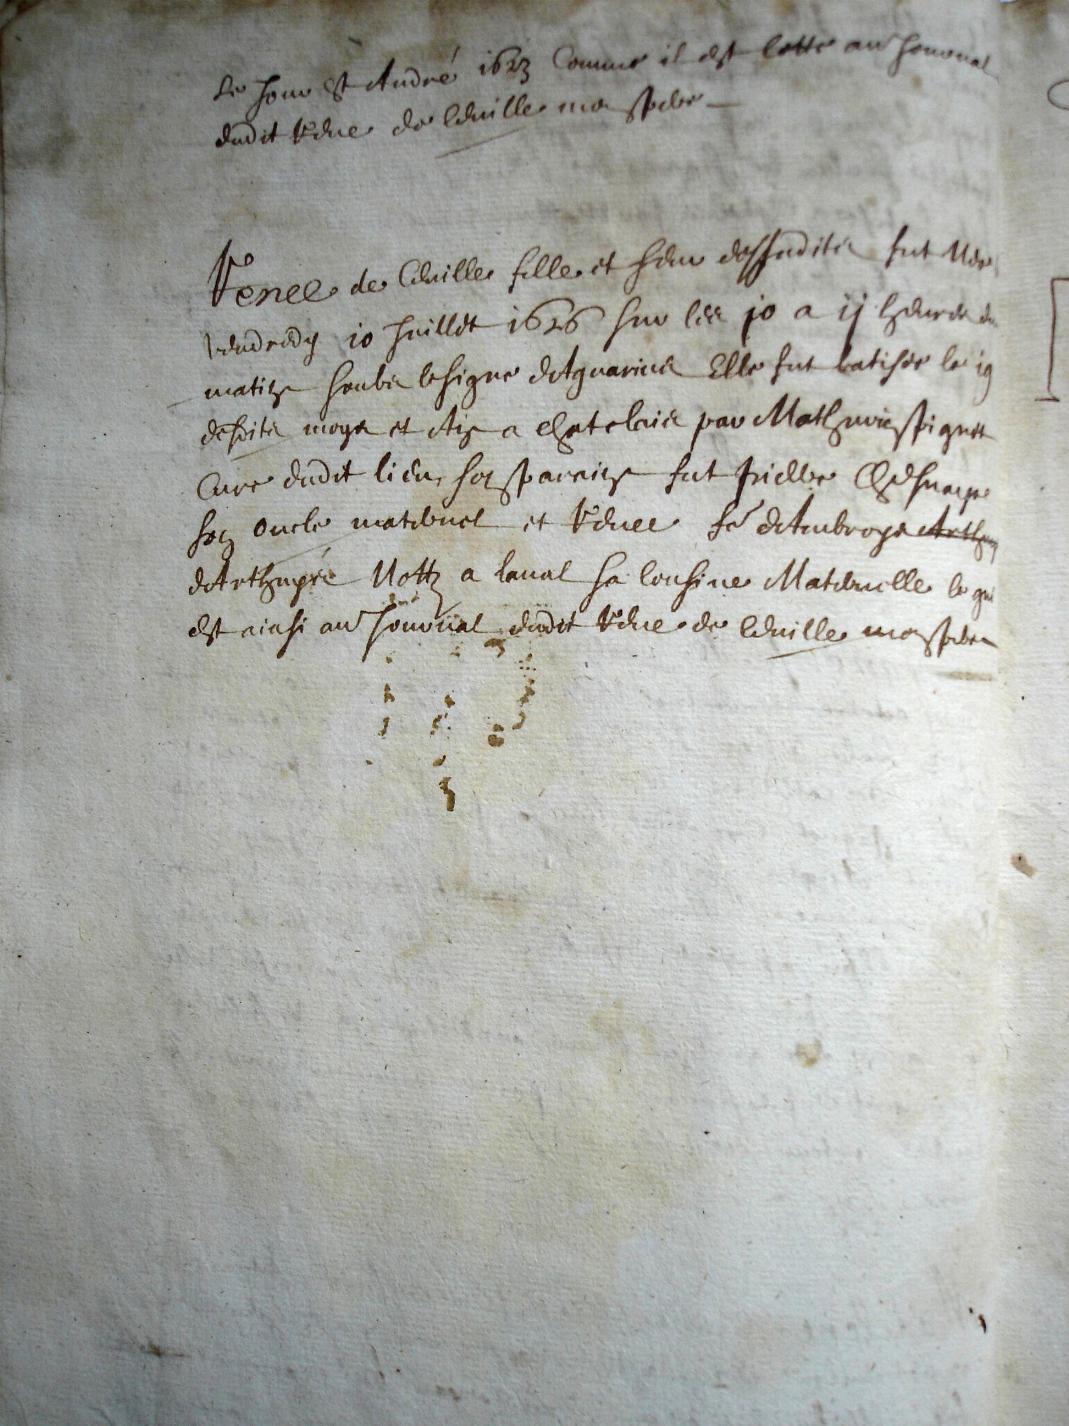 Le jour st André 1623 Comme il est Cotté au Journal
dudit René de Cevillé mon pere
Renee de Cevillé fille et seur desdudits fut née
vendredy 10 juillet 1626 sur les 10 a 11 heures du
matin soubs le signe d'Aquarius Elle fut batisée le 19
desdits moys et An a Chatelain par Mathurin pignet
Curé dudit lieu, son parain fut
son oncle maternel et Renee fe d'Ambroys
Nottre a laval sa cousine Maternelle le qui
est ainsi au Journal dudit René de Cevillé mon pere